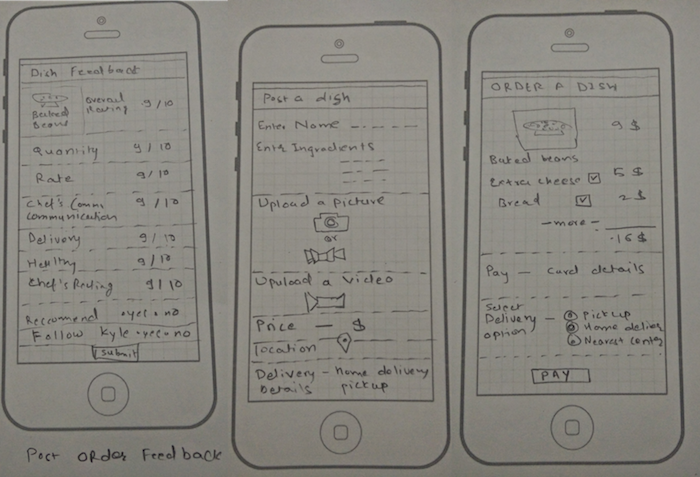 Dish Feedback
Overall
Rating 9/10
Baked
Beans
Quantity 9/10
Rate 9/10
Chef's Comm
communication 9/10
Delivery 9/10
Healthy 9/10
Chef's Rating 9/10
Reccomend •yes • no
Follow Kyle •yes • no
Submit
Post Order Feedback
Post a dish
Enter Name
Enter Ingredients
Upload a picture
or
Upload a Video
Price — $
location
Delivery - Home delivery
Details pickup
ORDER A DISH
9 $
Baked beans
Extra cheese 5 $
Bread 2 $
- more -
16 $
Pay - Card details
Select
Delivery - Pick up
option Home deliver
Nearest center
PAY